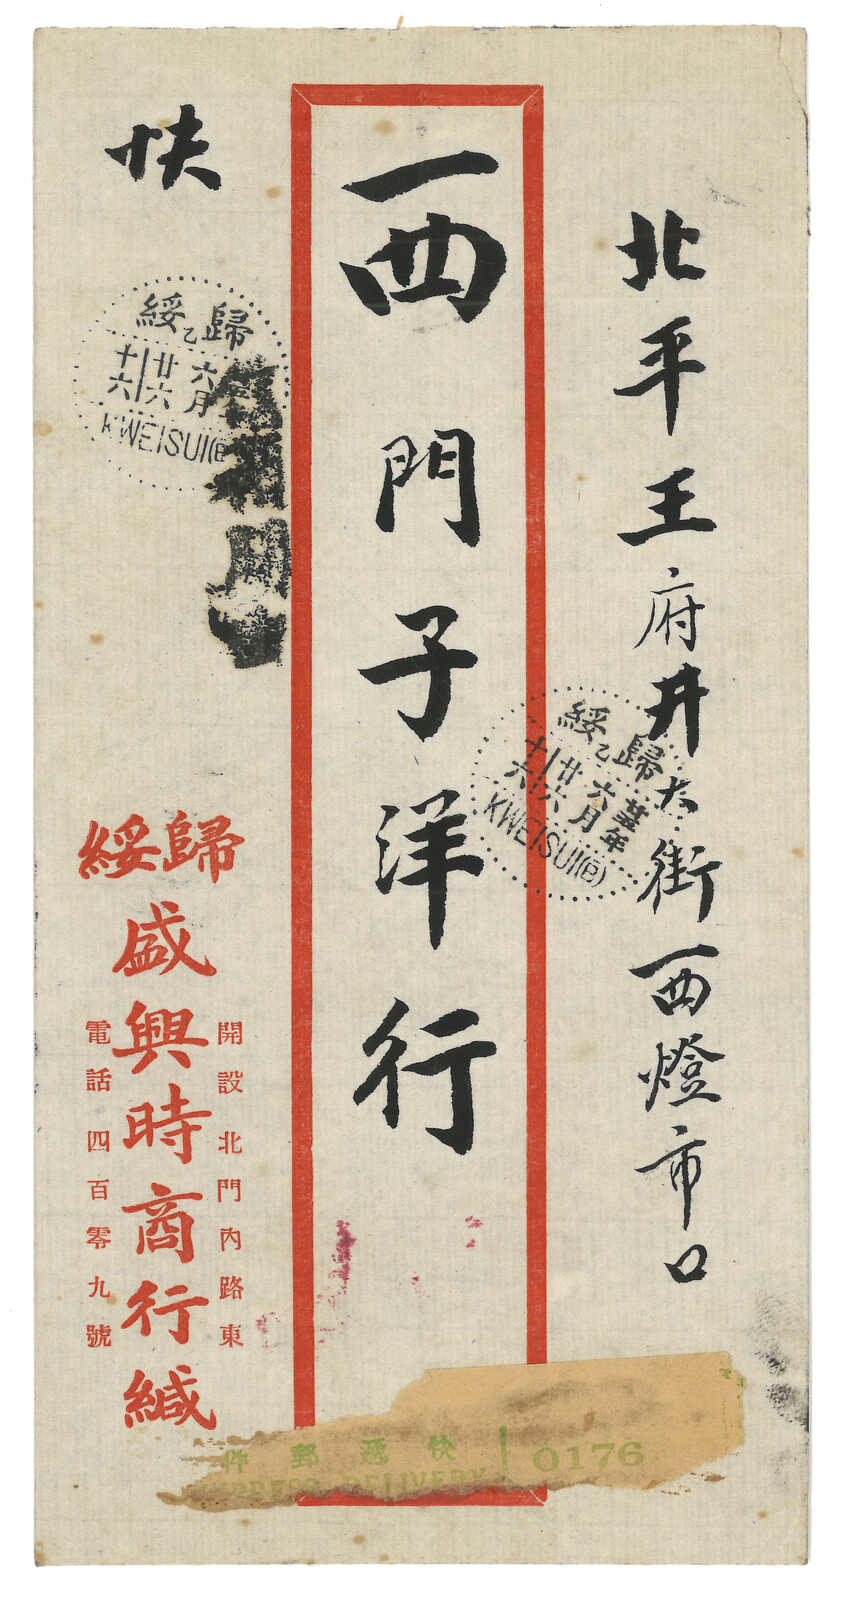 北平王府井大街西燈市口
西門子洋行
快
歸綏
乙
六月
廿六
十六
KWEISUI(E)
歸綏
乙
廿五年
六月
廿六
十六
KWEISUI(E)
歸綏
開設北門內路東
盛興時商行緘
電話四百零九號
快遞郵件
EXPRESS DELIVERY
0176